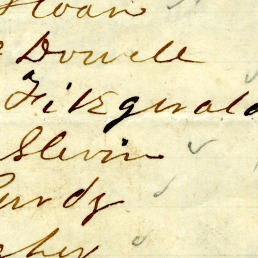 Sloan
Dowell
Fitzgerald
Slevin
Purdy